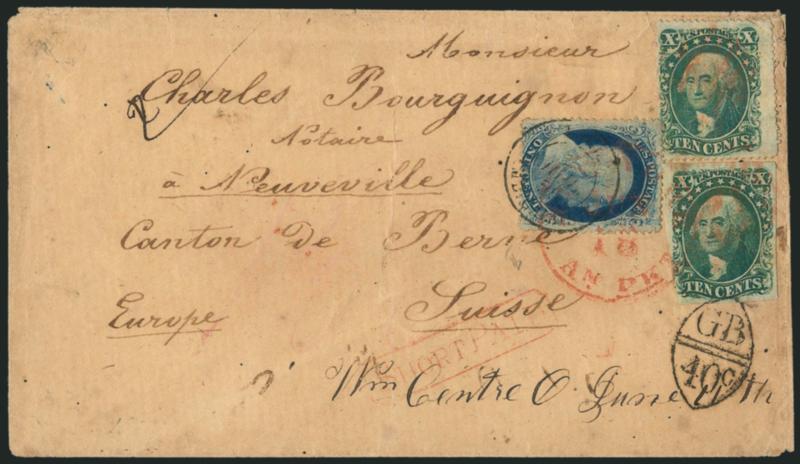 Monsieur
Charles Bourguignon
Notaire
à Neuveville
Canton de Berne
Suisse
Europe
X U.S. POSTAGE X
TEN CENTS
U.S. POSTAGE
X U.S. POSTAGE X
TEN CENTS
18
AM. PKT
SHORT PAID
GB
40c
Wm Centre O June 11th